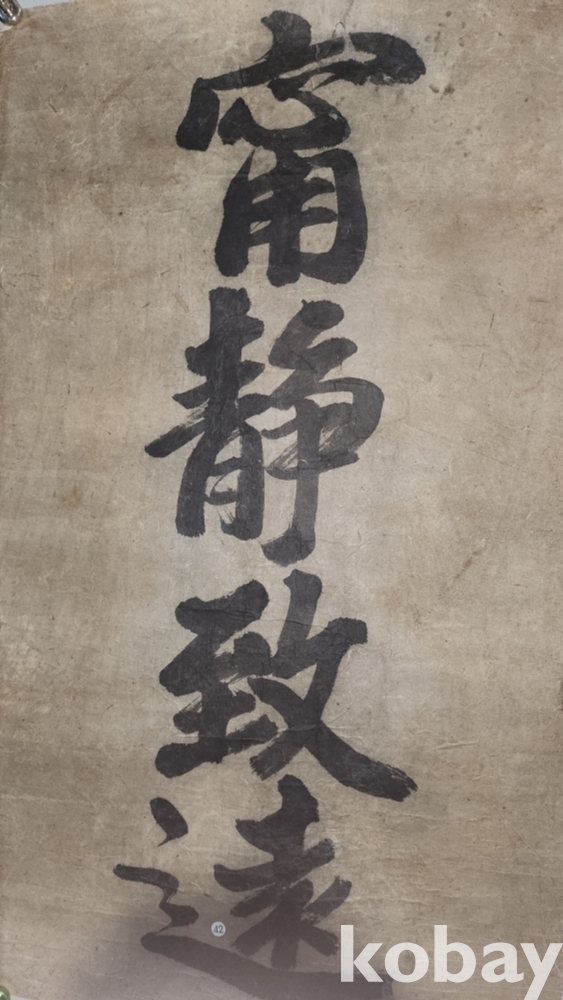 甯静致遠
42
kobay